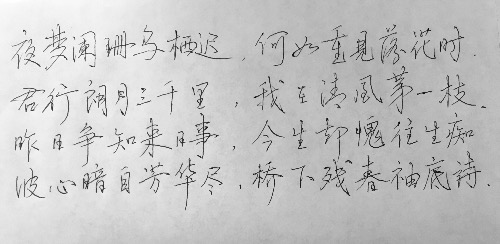 夜梦阑珊乌栖迟，何如重见落花时．
君行朗月三千里，我立清风第一枝．
昨日争知来日事，今生却愧往生痴
波心暗自芳华尽，桥下残春袖底詩．